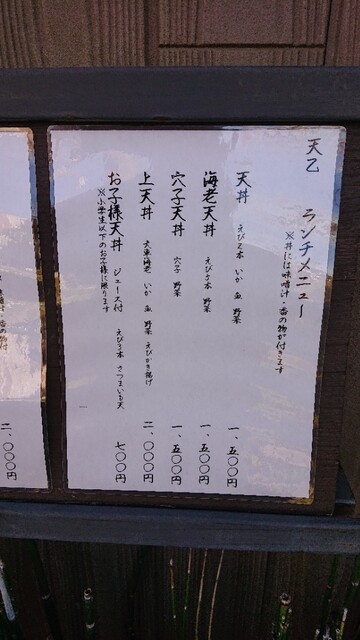 天乙
ランチメニュー
※丼には味噌汁・香の物が付きます
天丼 えび2本 いか 魚 野菜 一、五〇〇円
海老天丼 えび3本 野菜 一、五〇〇円
穴子天丼 穴子 野菜 一、五〇〇円
上天丼 大車海老 いか 魚 野菜 えびかき揚げ 二、〇〇〇円
お子様天丼 ジュース付 えび2本 さつまいも天 七〇〇円
※小学生以下のお子様に限ります
二、〇〇〇円